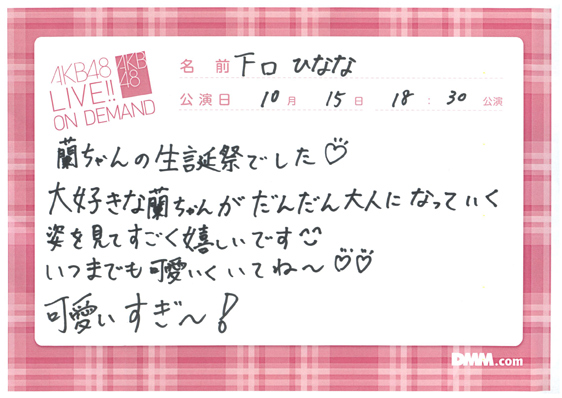 AKB48
LIVE!!
ON DEMAND
AKB
48
名前 下口 ひなな
公演日 10月 15日 18:30 公演
蘭ちゃんの生誕祭でした♡
大好きな蘭ちゃんがだんだん大人になっていく
姿を見てすごく嬉しいです
いつまでも可愛いくいてね〜♡♡
可愛いすぎ〜!
DMM.com